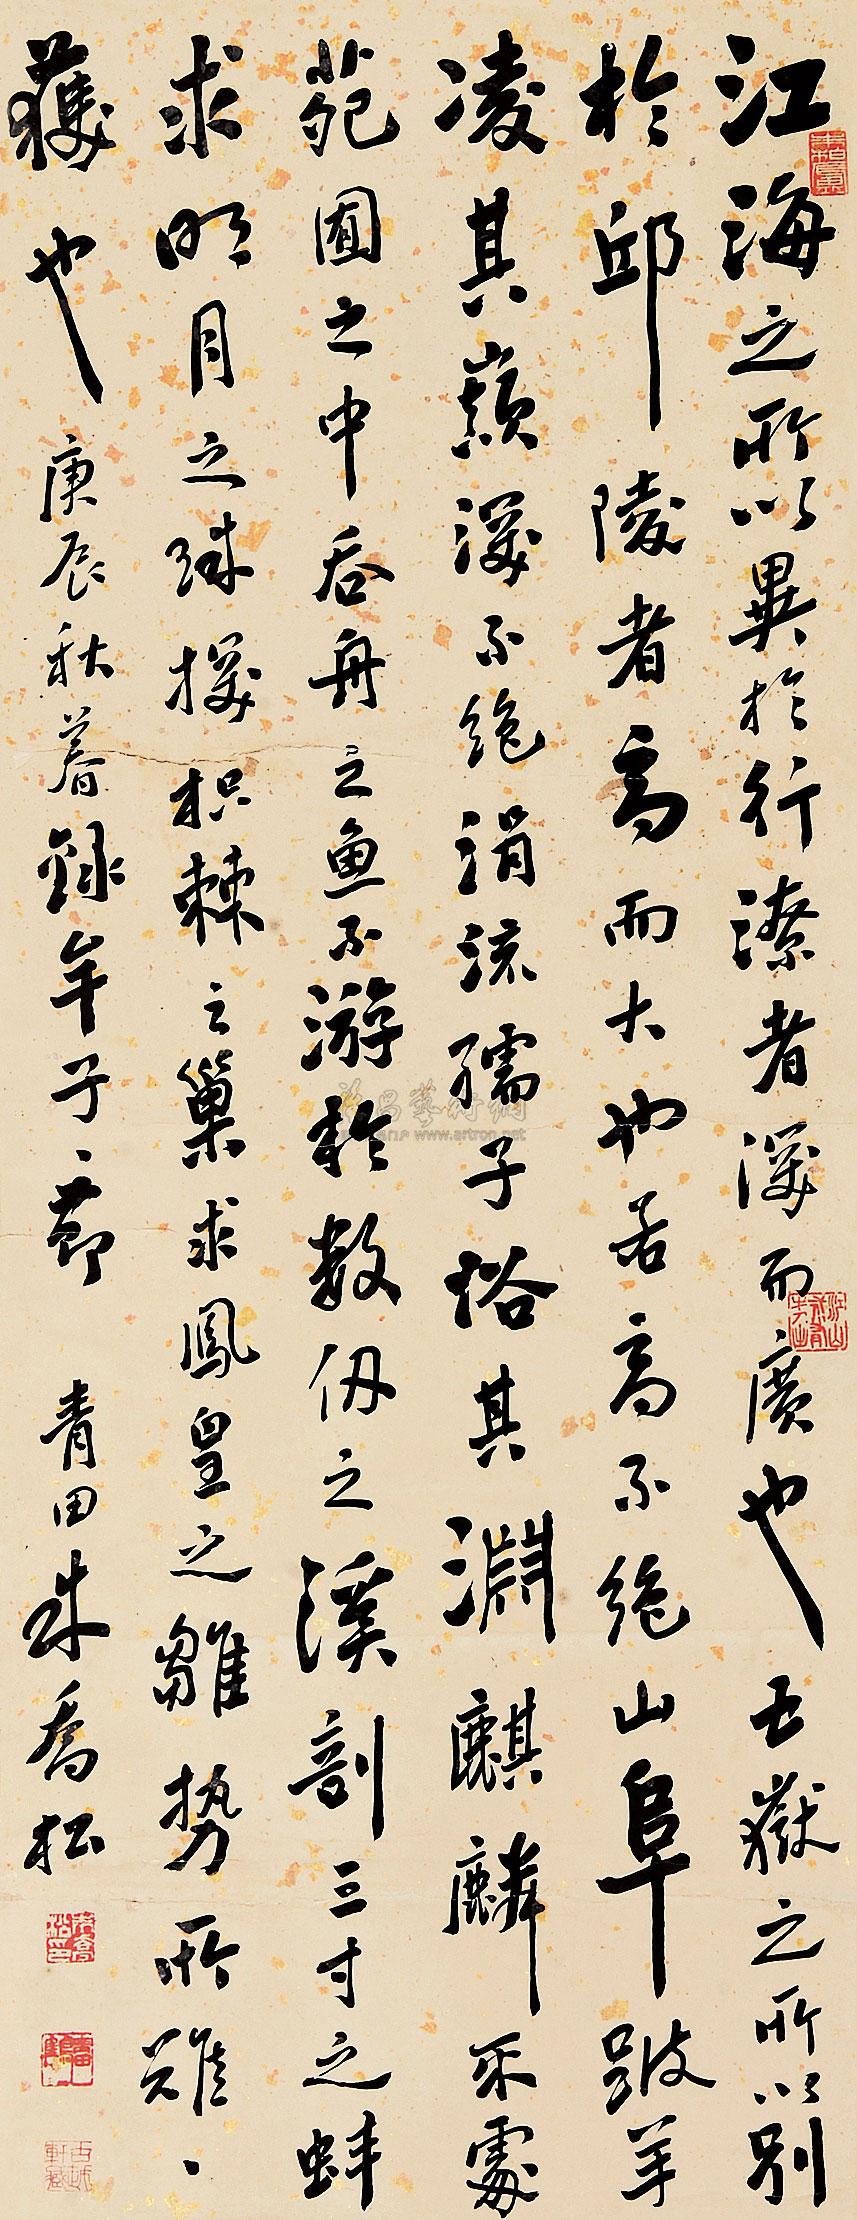 江海之所以異於行潦者深而廣也五嶽之所以別
於邱陵者高而大也若高不絕山阜跛羊
凌其巔深不絕涓流孺子浴其淵麒麟不處
苑囿之中吞舟之魚不游於數仞之溪剖三寸之蚌
求明月之珠探枳棘之巢求鳳皇之雛勢所難丶
獲也
庚辰秋暮錄牟子一節 青田朱喬松
www.artron.net